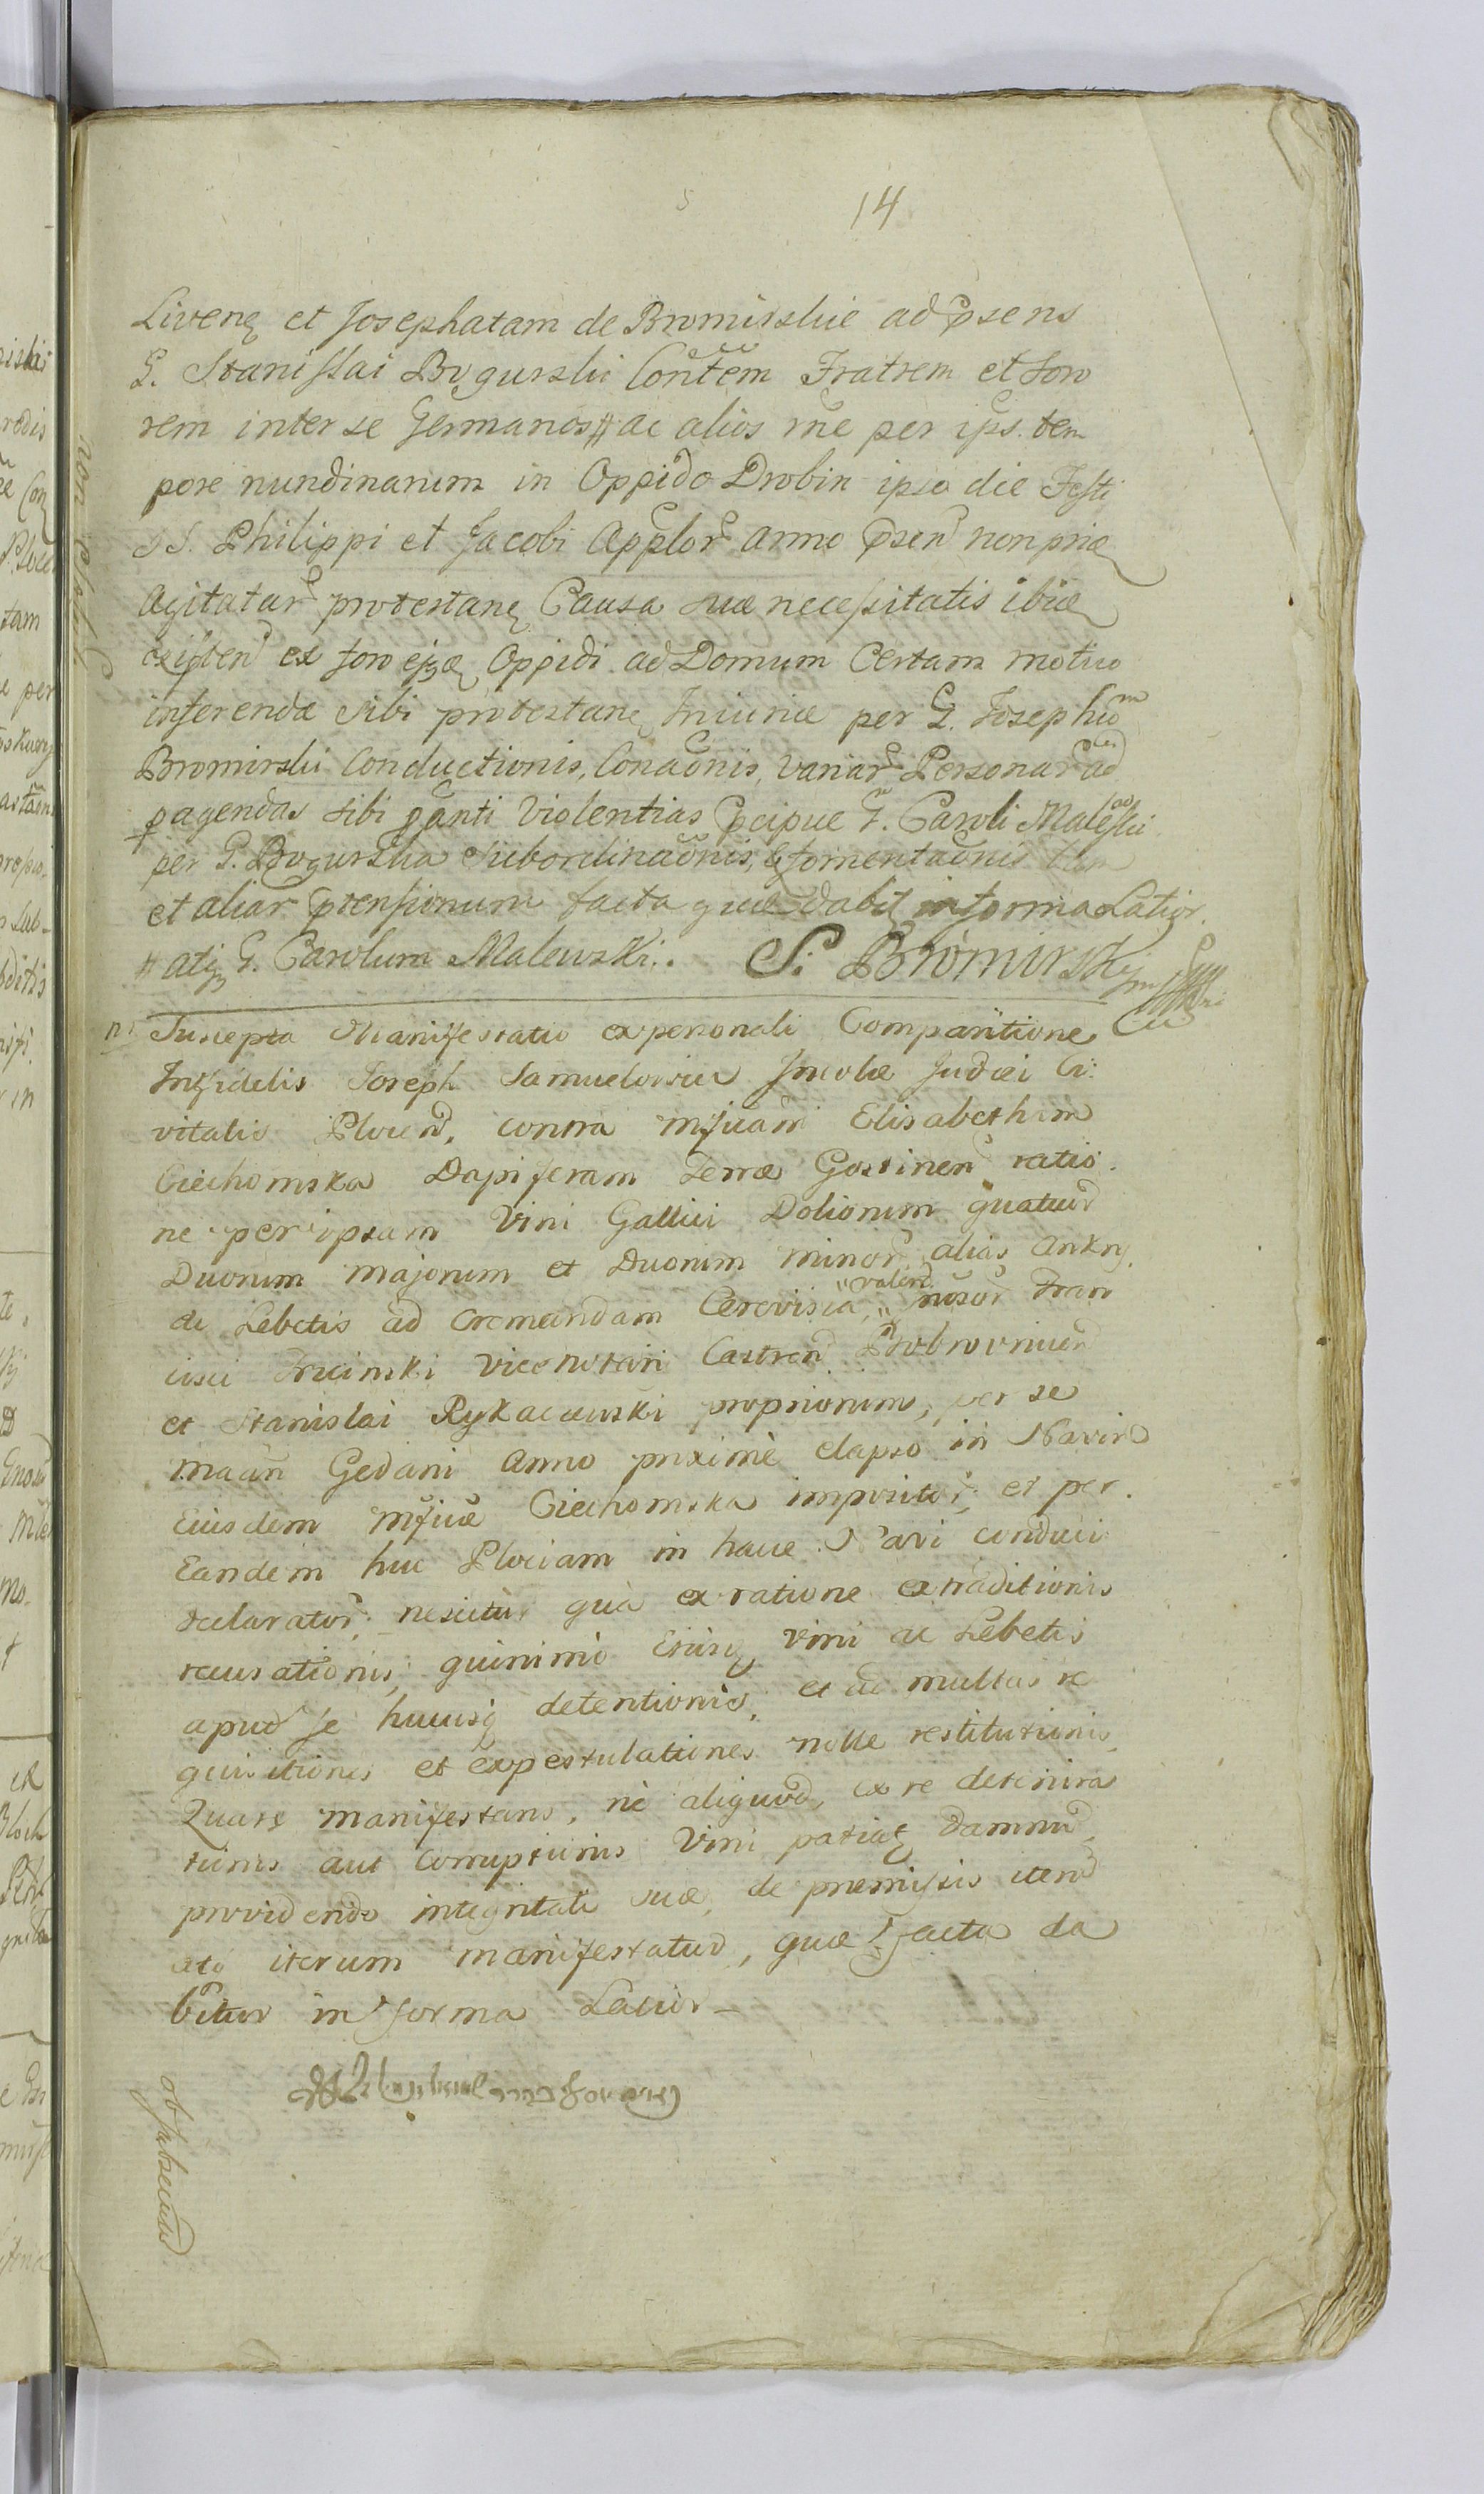 14
Livenę et Josephatam de Bromirskie ad psens
G. Stanislai Bogurski Contem Fratrem et Soro
rem inter se Germanos # ac alios rne per ips. tem
pore nundinarum in Oppido Drobin ipso die Festi
SS. Philippi et Jacobi Applor anno psen non
Agitatar protestanę Causa suæ necessitatis
existen ex foro Oppidi ad Domum Certam motivo
inferendæ sibi protestanę Iniuriæ per G. Josephum
Bromirski Conductionis, Conaonis, variar Personar ad
pagendas sibi Violentias pcipue G. Caroli Malewski
per G. Bogurska Subordinaonis, & fomentaonis
et aliar ptensionum facta quæ dabit in forma Latior.
# atq G. Carolum Malewski. S: Bromirsky mp
non
Suscepta Manifestatio ex personali Comparitione
Infidelis Joseph Samuelowicz Incolæ Judæi Ci:
vitatis Plocen, contra Mfcam Elisabetham
Ciechomska Dapiferam Terræ Gostinen ratio
ne per ipsam Vini Gallici Doliorum quatuor
Duorum majorum et Duorum minor alias Ankry,
ac Lebetis ad cremandam Cerevisia, " valen " Fran
cisci Trcinski vice notarii Castren Bobrovnicen
et Stanislai Rykaczewski propriorum, per se
Gedani Anno proxime elapso in Navim
Eiusdem Mfcæ Ciechomska impositor, et per
Eandem huc Plociam in hace Navi conduci
declarator, nescitur qua ex ratione extraditionis
recusationis, quinimo Eiusq vini ac Lebetis
apud se hucusq detentionis, et ad multas re
quisitiones et expostulationes nolle restitutionis,
Quare manifestans, ne aliquod, ex re
tionis aut corruptionis Vini patiat damnum
providendo integritati suæ, de præmissis iteru
atq iterum manifestatur, quæ facta da
bitur in forma Latior –